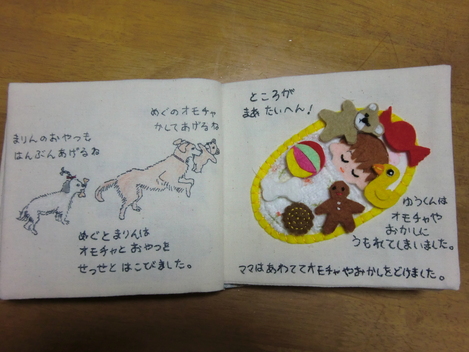 めぐのオモチャ
かしてあげるね
まりんのおやつも
はんぶんあげるね
めぐとまりんは
オモチャと おやつを
せっせと はこびました。
ところが
まあ たいへん!
ゆうくんは
オモチャや
おかしに
うもれてしまいました。
ママはあわててオモチャやおかしをどけました。